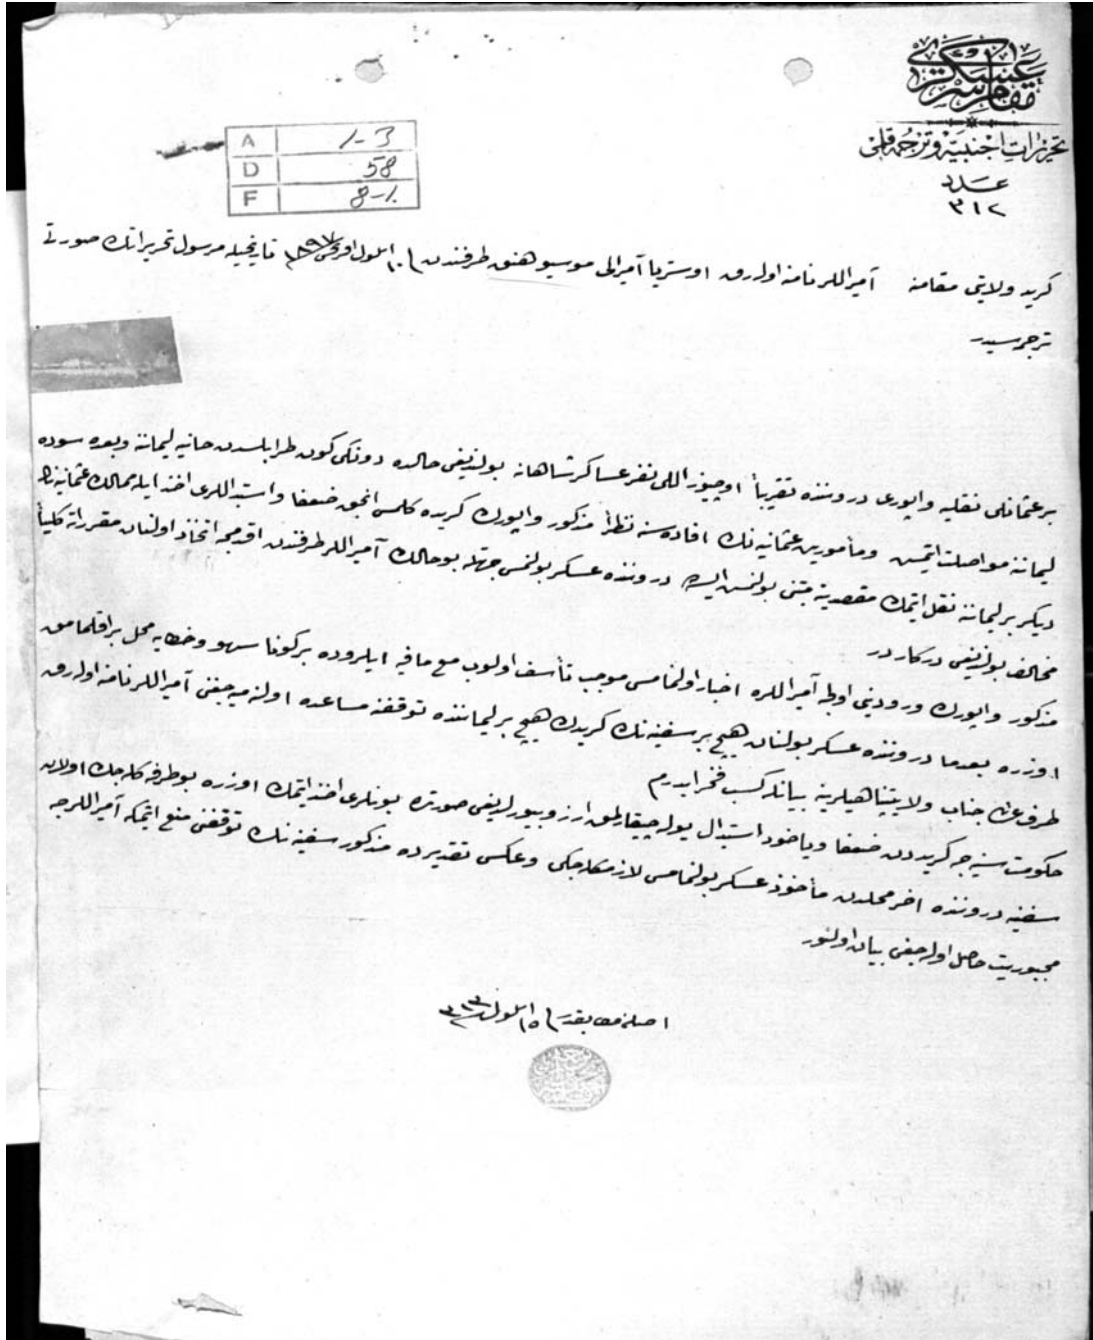 مقام سرعسكری
تحریرات اجنبیه و ترجمه قلمی
عدد
٣١٢
A 1-3
D 58
F 8-1
كرید ولایتی مقامنه آمیراللر نامنه اولەرق اوستریا آمیرالی موسیو هنق طرفندن ١٠ ایلول افرنجی ١٨٩٧ تاریخیله مرسول تحریراتك صورت
ترجمه سیدر
بر عثمانلی نقلیه واپوری دروننده تقریباً اوچیوز اللی نفر عساكر شاهانه بولندیغی حالده دونكی كون طرابلسدن حانیه لیماننه وبعده سوده
لیماننه مواصلت ایتمش ومأمورین عثمانیه نك افاده سنه نظراً مذكور واپورك كریده كلمسی انجق ضعفا و استبداللری اخذ ایله ممالك عثمانیه نك
دیكر بر لیماننه نقل ایتمك مقصدینه مبتنی بولنمش ایسه ده دروننده عسكر بولنمسی جهتله بو حالك آمیراللر طرفندن اقدمجه اتخاذ اولنان مقرراته كلیاً
مخالف بولندیغی دركاردر
مذكور واپورك ورودینی اولجه آمیراللره اخبار اولنمامسی موجب تأسف اولوب مع مافیه ایلروده بركونا سهو وخطایه محل براقلمامق
اوزره بعدما دروننده عسكر بولنان هیچ بر سفینه نك كریدك هیچ بر لیماننده توقفنه مساعده اولنه میه جغنی آمیراللر نامنه اولەرق
طرف جناب ولایتپناهیلرینه بیانله كسب فخر ایدرم
حكومت سنیه جه كریددن ضعفا ویاخود استبدال یوله چیقارلمق ارزو بیورلدیغی صورتده بونلری اخذ ایتمك اوزره بو طرفه كله جك اولان
سفینه دروننده اخر محلدن مأخوذ عسكر بولنمامسی لازمكله جكی وعكسی تقدیرده مذكور سفینه نك توقفنی منع ایتمكه آمیراللرجه
مجبوریت حاصل اوله جغی بیان اولنور
اصلنه مطابقدر ١٥ ایلول ٣١٣